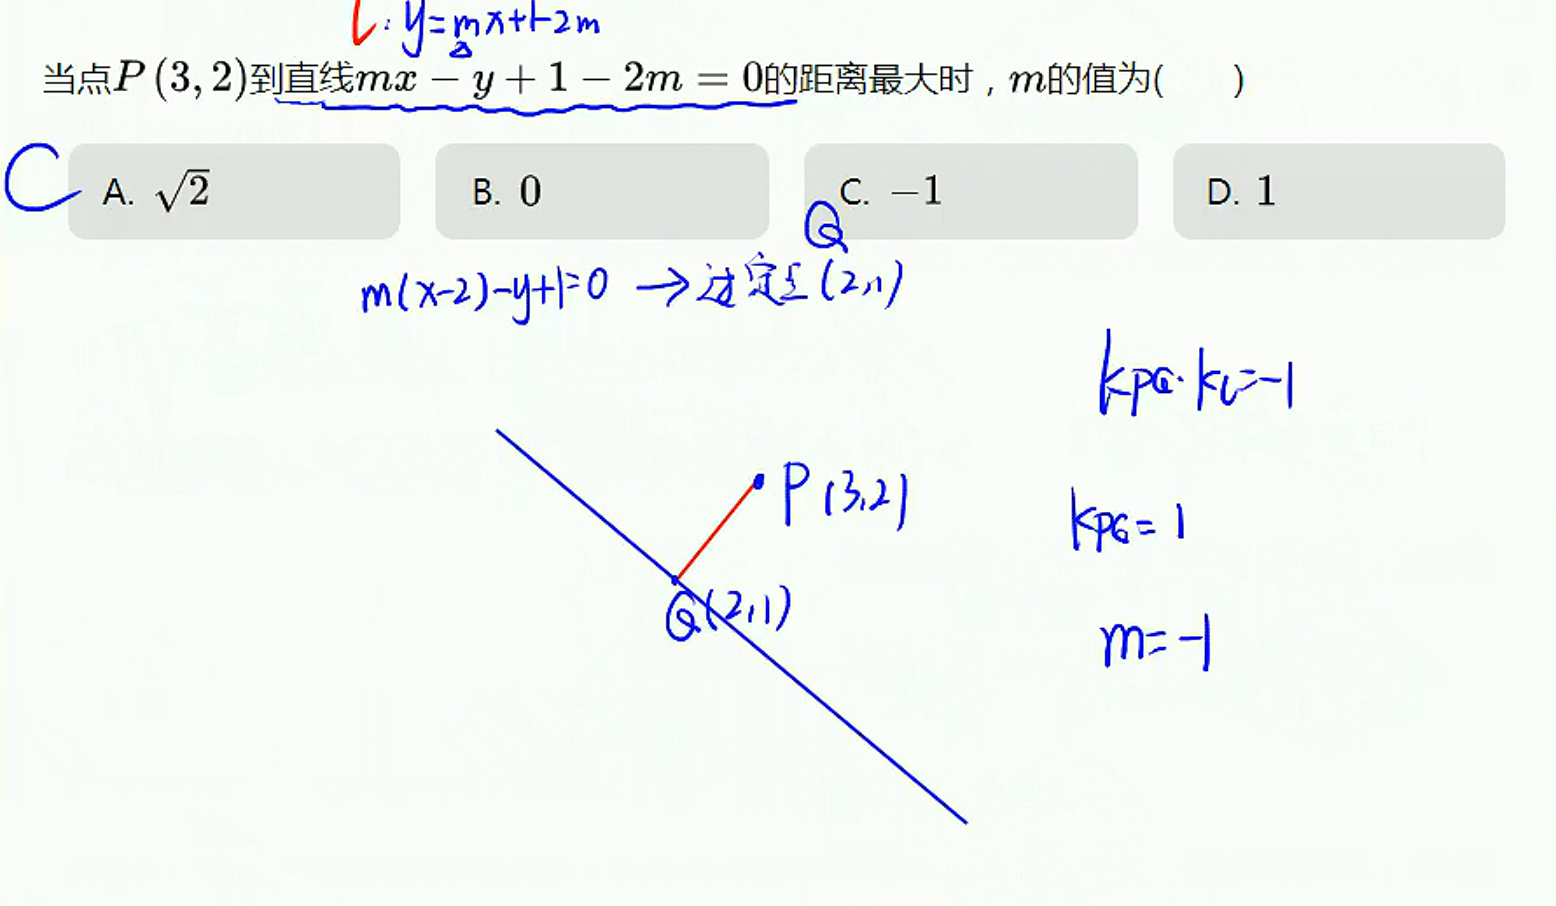 l: y=mx+1-2m
当点P(3,2)到直线mx-y+1-2m=0的距离最大时，m的值为( )
C
A. √2
B. 0
C. -1
D. 1
Q
m(x-2)-y+1=0 →过定点(2,1)
kPQ·kl=-1
P(3,2)
kPQ=1
Q(2,1)
m=-1